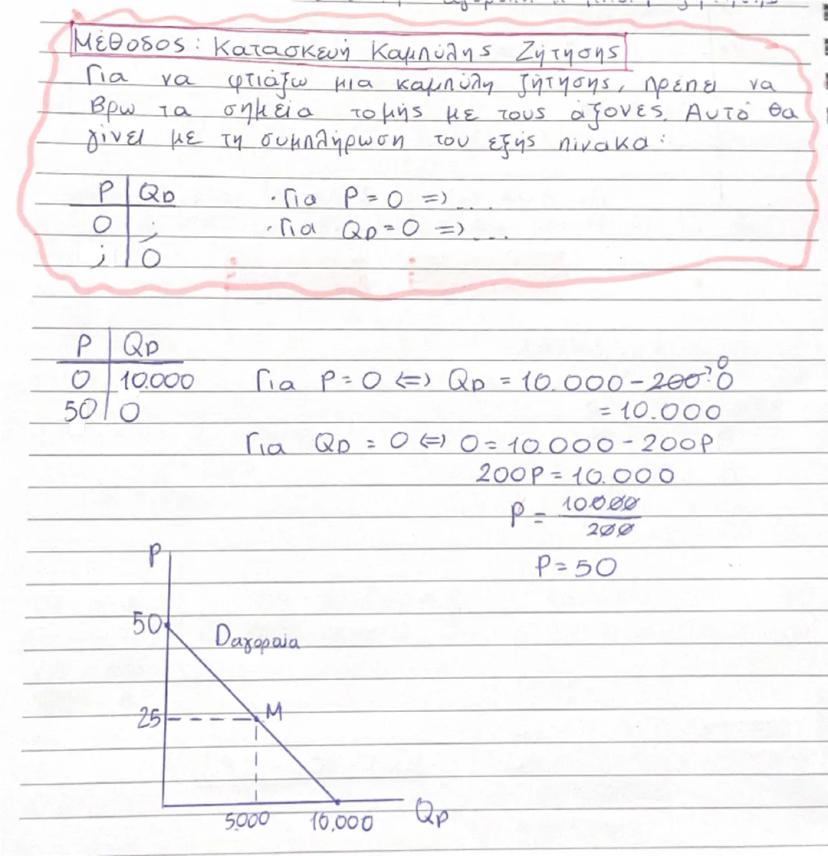 Μέθοδος: Κατασκευή Καμπύλης Ζήτησης
Για να φτιάξω μια καμπύλη ζήτησης, πρέπει να
βρω τα σημεία τομής με τους άξονες. Αυτό θα
γίνει με τη συμπλήρωση του εξής πίνακα:
P | QD · Για P = 0 => ...
0 | ; · Για QD = 0 => ...
; | 0
P | QD
0 | 10.000 Για P = 0 <=> QD = 10.000 - 200·0 0
50 | 0 = 10.000
Για QD = 0 <=> 0 = 10.000 - 200P
200P = 10.000
P = 10.000/200
P = 50
P
50 Dαγοραία
25 M
5.000 10.000 QD